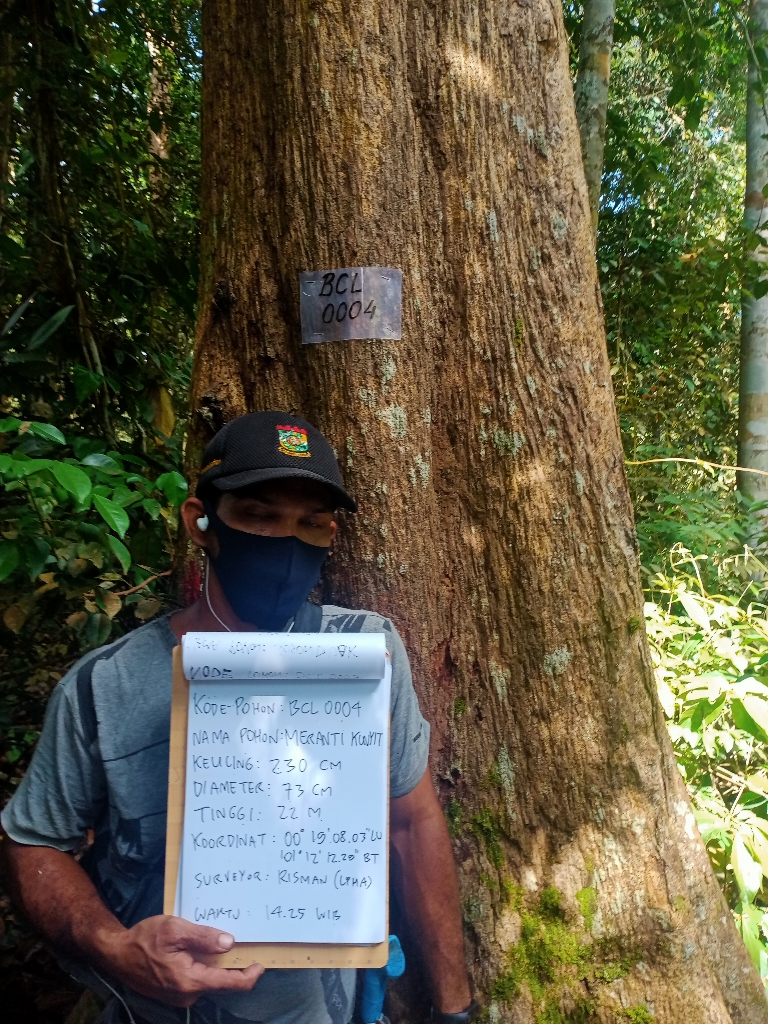 BCL
0004
KODE
KODE-POHON: BCL 0004
NAMA POHON: MERANTI KUNYIT
KELILING: 230 CM
DIAMETER: 73 CM
TINGGI: 22 M
KOORDINAT: 00° 19' 08.03" LU
101° 12' 12.20" BT
SURVEYOR: RISMAN (LPHA)
WAKTU: 14.25 WIB